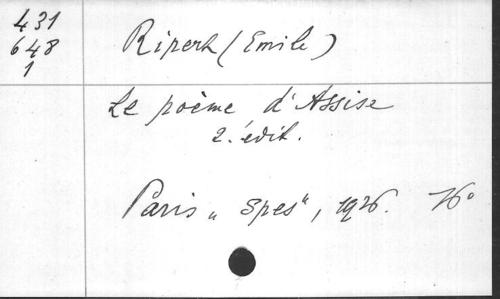 431
648
1
Ripert (Emile)
Le poème d'Assise
2. édit.
Paris „Spes", 1926. 16°